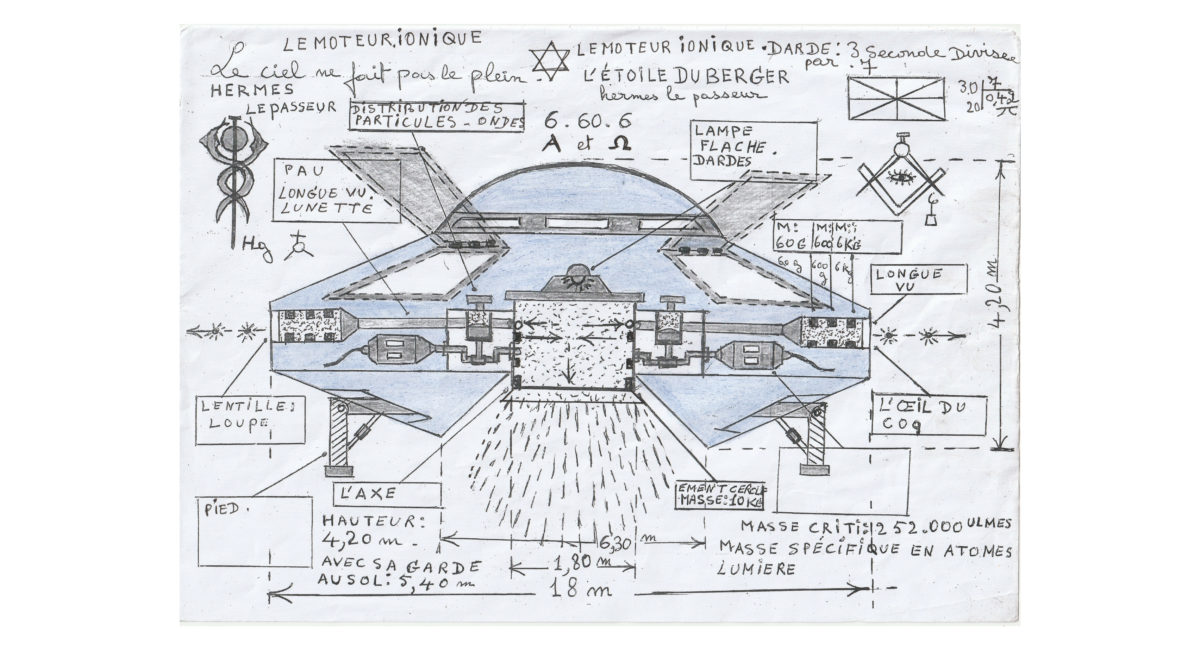 LE MOTEUR IONIQUE
Le ciel ne fait pas le plein
HERMES
LE PASSEUR
LE MOTEUR IONIQUE . DARDE : 3 Seconde Divisée
par . 7
L'ÉTOILE DU BERGER
hermes le passeur
30 7
20 0,42
π
DISTRIBUTION DES
PARTICULES - ONDES
6 . 60 . 6
A et Ω
LAMPE
FLACHE .
DARDES
PAU
LONGUE VU .
LUNETTE
Hg
6
M: M: M:
60G 600 6KG
60g 600g 6kg
LONGUE
VU
4,20 m
LENTILLE :
LOUPE
L'ŒIL DU
COQ
L'AXE
EMENT CERCLE
MASSE : 10 KG
PIED .
HAUTEUR :
4,20 m .
AVEC SA GARDE
AU SOL : 5,40 m
6,30 m
1,80 m
18 m
MASSE CRITI : 252.000 ULMES
MASSE SPÉCIFIQUE EN ATOMES
LUMIERE